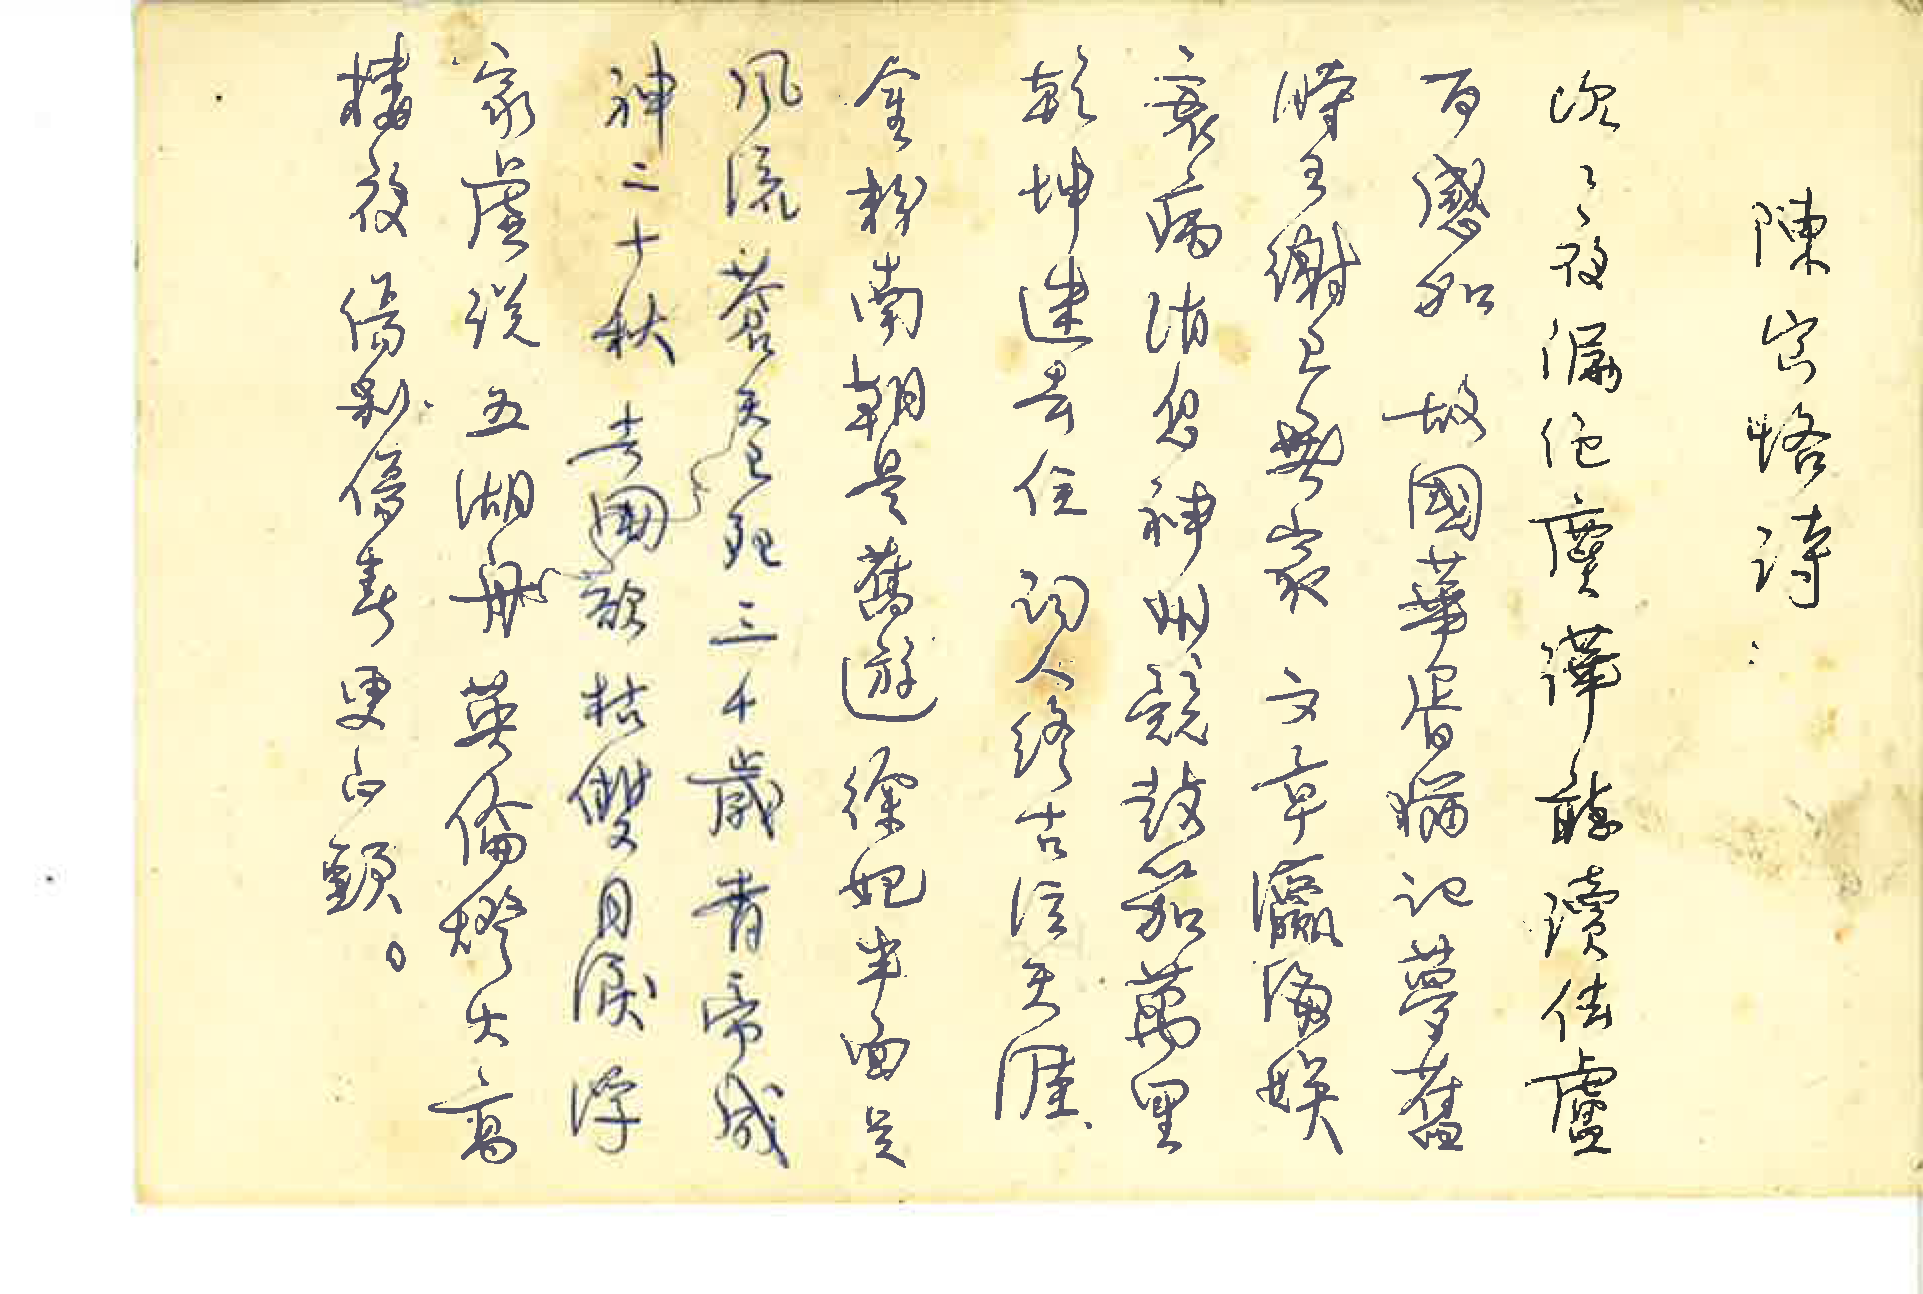 陳寅恪詩:
沉〻夜漏绝塵譁聽讀佉盧
百感加 故國華胥猶記夢舊
時王謝已無家 文章瀛海娛
衰病消息神州競鼓笳萬里
乾坤迷去住 詞人終古泣天涯
金粉南朝是舊遊 徐妃半面足
風流蒼天已死三千歲青帝成
神二十秋 去國欲枯雙目淚浮
家虛說五湖舟 英倫燈火高
樓夜傷別傷春更白頭。